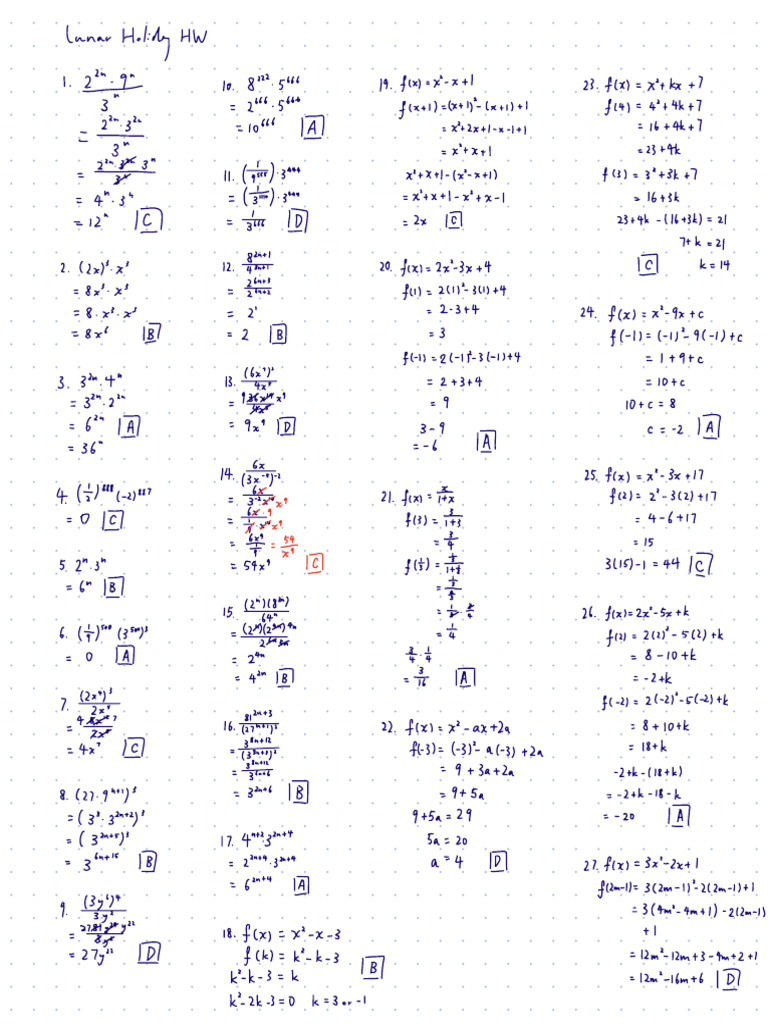 Lunar Holiday HW
1. 2^{2n} · 9^n / 3^n
= 2^{2n} · 3^{2n} / 3^n
= 2^{2n} · 3^{2n} 3^n / 3^n
= 4^n · 3^n
= 12^n [C]
2. (2x)^3 · x^3
= 8x^3 · x^3
= 8 · x^3 · x^3
= 8x^6 [B]
3. 3^{2n} · 4^n
= 3^{2n} · 2^{2n}
= 6^{2n} [A]
= 36^n
= 0 [C]
5. 2^n · 3^n
= 6^n [B]
= 0 [A]
7. (2x^4)^3 / 2x^5
= 4x^7 [C]
8. (27 · 9^{n+1})^3
= (3^3 · 3^{2n+2})^3
= (3^{2n+5})^3
= 3^{6n+15} [B]
9. (3y^6)^4 / 3y^2
= 27y^{22} [D]
10. 8^{222} · 5^{666}
= 2^{666} · 5^{666}
= 10^{666} [A]
11. (1/9^{555}) · 3^{444}
= (1/3^{1110}) · 3^{444}
= 1/3^{666} [D]
12. 8^{2n+1} / 4^{3n+1}
= 2^{6n+3} / 2^{6n+2}
= 2^1
= 2 [B]
13. (6x^9)^2 / 4x^9
= 9x^9 [D]
14. 6x / (3x^{-4})^{-2}
= 6x^9 / (1/9) = 54/x^9
= 54x^9 [C]
15. (2^n)(8^{2n}) / 64^n
= 2^{4n}
= 4^{2n} [B]
16. 81^{2n+3} / (27^{n+1})^2
= 3^{8n+12} / (3^{3n+3})^2
= 3^{8n+12} / 3^{6n+6}
= 3^{2n+6} [B]
17. 4^{n+2} · 3^{2n+4}
= 2^{2n+4} · 3^{2n+4}
= 6^{2n+4} [A]
18. f(x) = x^2 - x - 3
f(k) = k^2 - k - 3
k^2 - k - 3 = k [B]
k^2 - 2k - 3 = 0 k = 3 or -1
19. f(x) = x^2 - x + 1
f(x+1) = (x+1)^2 - (x+1) + 1
= x^2 + 2x + 1 - x - 1 + 1
= x^2 + x + 1
x^2 + x + 1 - (x^2 - x + 1)
= x^2 + x + 1 - x^2 + x - 1
= 2x [C]
20. f(x) = 2x^2 - 3x + 4
f(1) = 2(1)^2 - 3(1) + 4
= 2 - 3 + 4
= 3
f(-1) = 2(-1)^2 - 3(-1) + 4
= 2 + 3 + 4
= 9
3 - 9
= -6 [A]
21. f(x) = x / 1+x
f(3) = 3 / 1+3
= 3/4
f(1/3) = 1/3 / 1+1/3
= 1/4
3/4 · 1/4
= 3/16 [A]
22. f(x) = x^2 - ax + 2a
f(-3) = (-3)^2 - a(-3) + 2a
= 9 + 3a + 2a
= 9 + 5a
9 + 5a = 29
5a = 20
a = 4 [D]
23. f(x) = x^2 + kx + 7
f(4) = 4^2 + 4k + 7
= 16 + 4k + 7
= 23 + 4k
f(3) = 3^2 + 3k + 7
= 16 + 3k
23 + 4k - (16 + 3k) = 21
7 + k = 21
[C] k = 14
24. f(x) = x^2 - 9x + c
f(-1) = (-1)^2 - 9(-1) + c
= 1 + 9 + c
= 10 + c
10 + c = 8
c = -2 [A]
25. f(x) = x^2 - 3x + 17
f(2) = 2^2 - 3(2) + 17
= 4 - 6 + 17
= 15
3(15) - 1 = 44 [C]
26. f(x) = 2x^2 - 5x + k
f(2) = 2(2)^2 - 5(2) + k
= 8 - 10 + k
= -2 + k
f(-2) = 2(-2)^2 - 5(-2) + k
= 8 + 10 + k
= 18 + k
-2 + k - (18 + k)
= -2 + k - 18 - k
= -20 [A]
27. f(x) = 3x^2 - 2x + 1
f(2m-1) = 3(2m-1)^2 - 2(2m-1) + 1
= 3(4m^2 - 4m + 1) - 2(2m-1)
+ 1
= 12m^2 - 12m + 3 - 4m + 2 + 1
= 12m^2 - 16m + 6 [D]